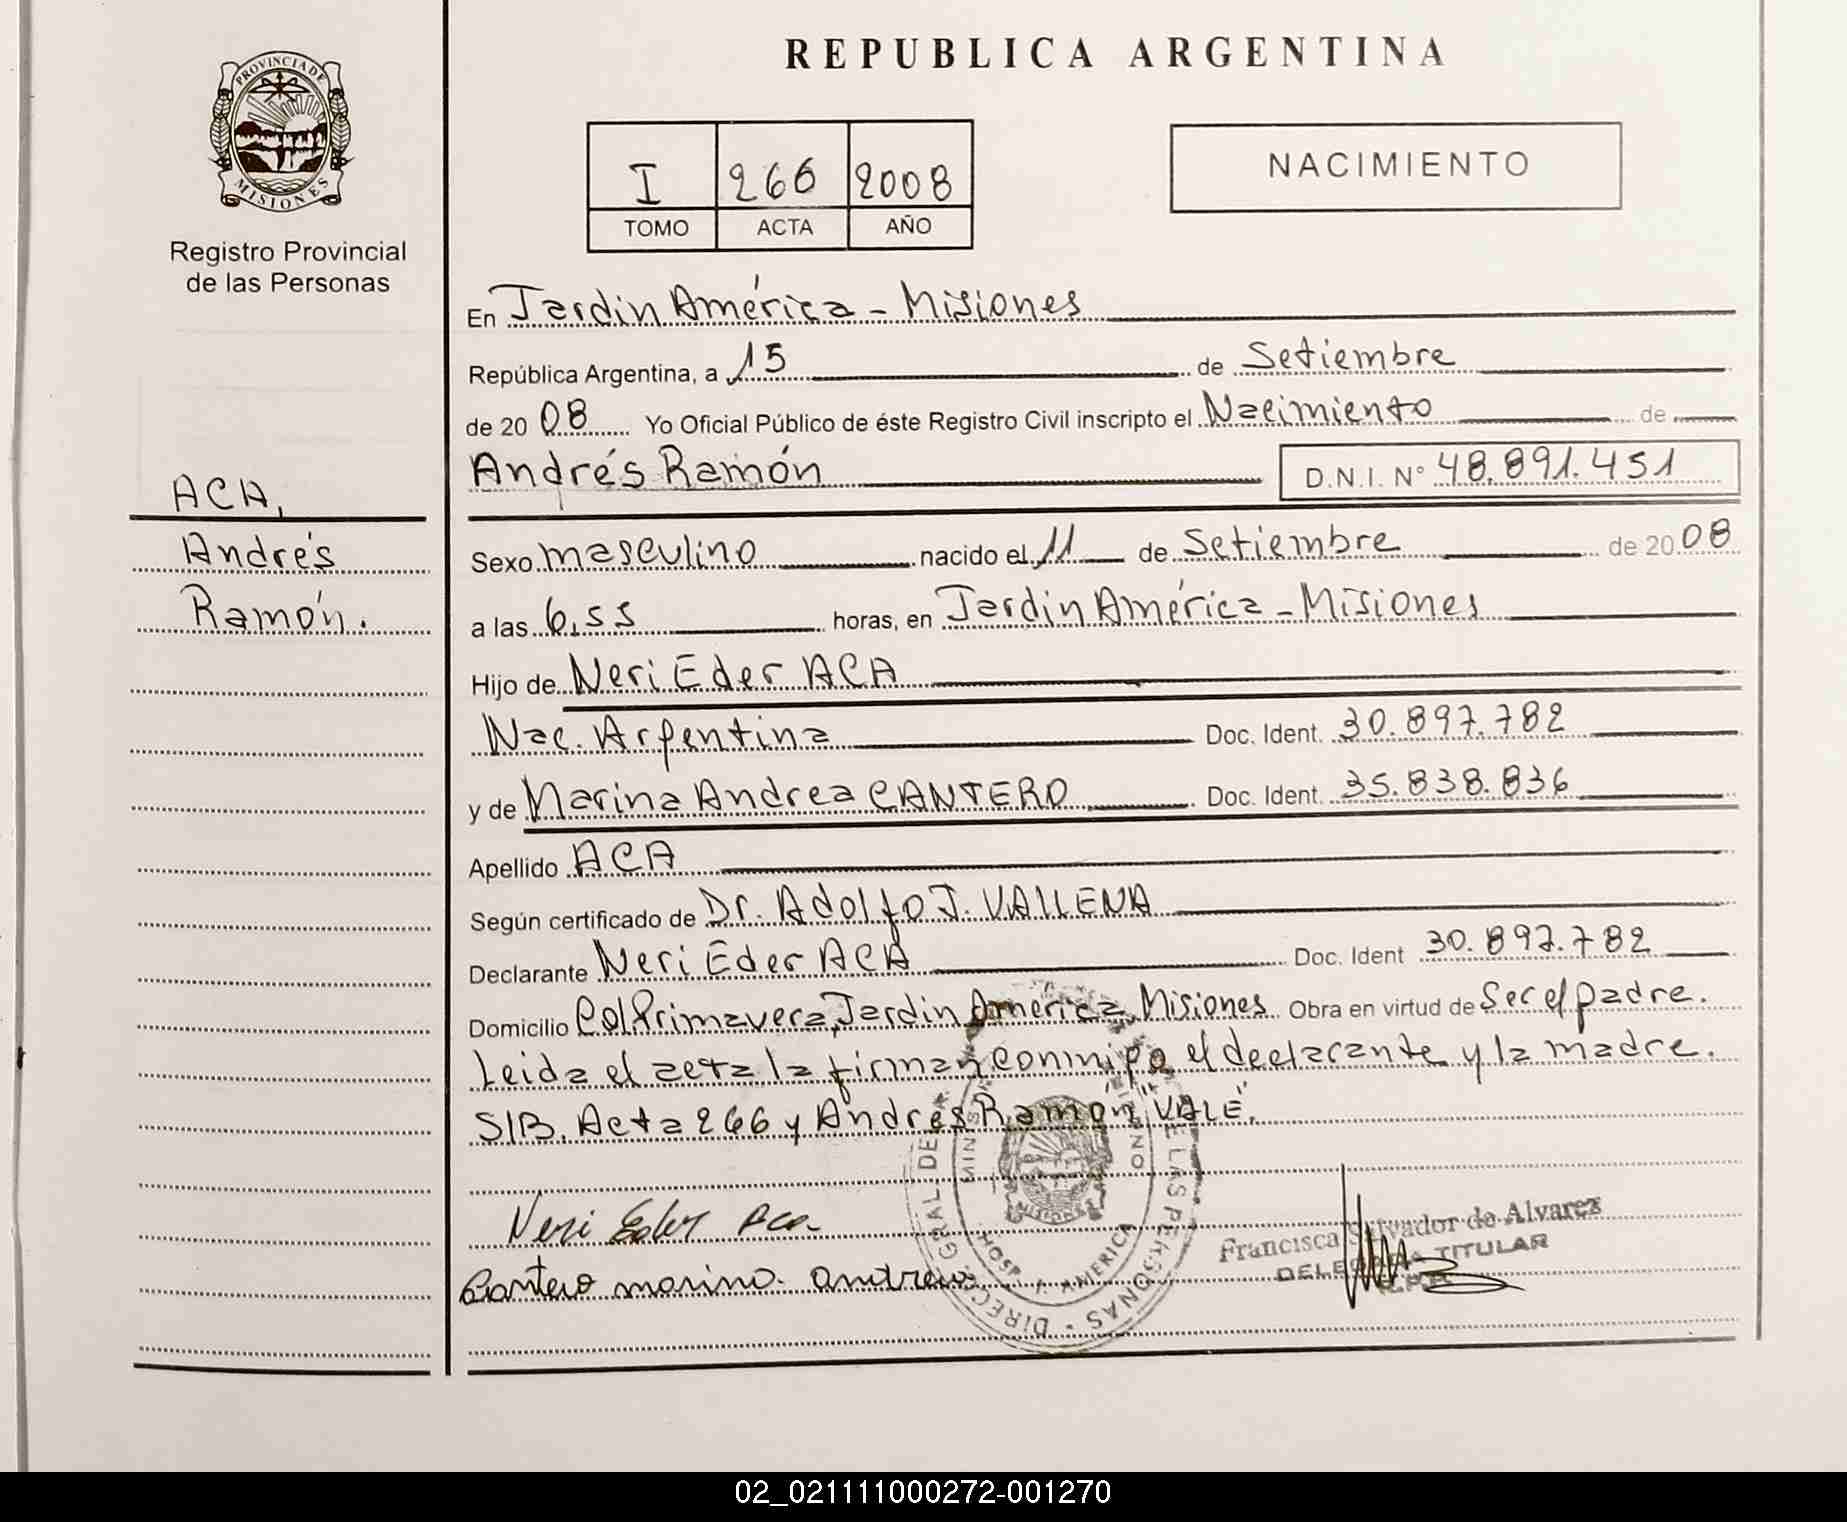 PROVINCIA DE
MISIONES
Registro Provincial
de las Personas
ACA,
Andrés
Ramón.
REPUBLICA ARGENTINA
I 266 2008
TOMO ACTA AÑO
NACIMIENTO
En Jardin América - Misiones
República Argentina, a 15 de Setiembre
de 20 08 Yo Oficial Público de éste Registro Civil inscripto el Nacimiento de
Andrés Ramón D.N.I. N° 48.891.451
Sexo masculino nacido el 11 de Setiembre de 20 08
a las 6,55 horas, en Jardin América - Misiones
Hijo de Neri Eder ACA
Nac. Argentina Doc. Ident. 30.897.782
y de Marina Andrea CANTERO Doc. Ident. 35.838.836
Apellido ACA
Según certificado de Dr. Adolfo J. VALLENA
Declarante Neri Eder ACA Doc. Ident 30.897.782
Domicilio Col Primavera, Jardin América, Misiones Obra en virtud de Ser el padre.
Leida el acta la firman conmigo el declarante y la madre.
S/B. Acta 266 y Andrés Ramón "VALE".
Neri Eder Aca
Cantero marina andrea
DIRECC. GRAL. DE LAS PERSONAS
HOSP. J. AMERICA
MISIONES
Francisca Salvador de Alvarez
DELEGADA TITULAR
R.P.P.
02_021111000272-001270